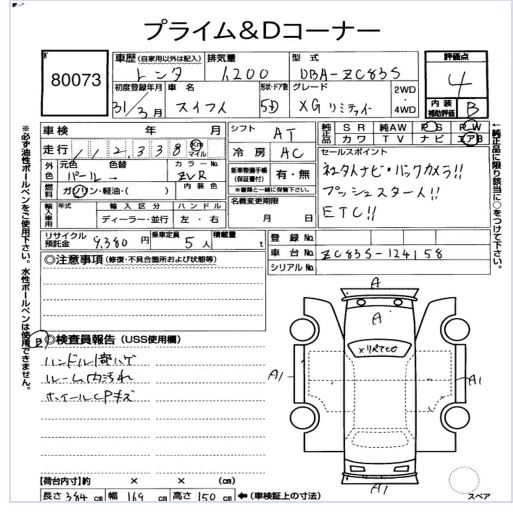 プライム&Dコーナー
80073
車歴(自家用以外は記入)
レンタ
排気量
1,200
型式
DBA-ZC83S
評価点
4
初度登録年月
31年3月
車名
スイフト
形状・ドア数
5D
グレード
XG リミティド
2WD
4WD
内装
補助評価
B
車検 年 月
走行
112,338
Km
マイル
シフト
AT
冷房
AC
純正品
SR 純AW PS PW
カワ TV ナビ エアB
セールスポイント
社外ナビ・バックカメラ!!
プッシュスタート!!
ETC!!
外色
元色 色替
パール→
カラーNo.
ZVR
燃料
ガソリン・軽油・( )
内装色
新車整備手帳
(保証書付)
有・無
※書類と一緒に保管下さい。
名義変更期限
月 日
輸入車用
年式
輸入区分
ディーラー・並行
ハンドル
左・右
リサイクル預託金
9,380円
乗車定員
5人
積載量
t
登録No.
車台No.
ZC83S-124158
シリアルNo.
◎注意事項(修復・不具合箇所および状態等)
◎検査員報告(USS使用欄)
B
ルーム内汚れ
ホイールCPキズ
A
A
A1
A1
A1
スペア
【荷台内寸】約 × × (cm)
長さ 384 cm 幅 169 cm 高さ 150 cm ←(車検証上の寸法)
※必ず油性ボールペンをご使用下さい。水性ボールペンは使用できません。
←純正品に限り該当に○をつけて下さい。